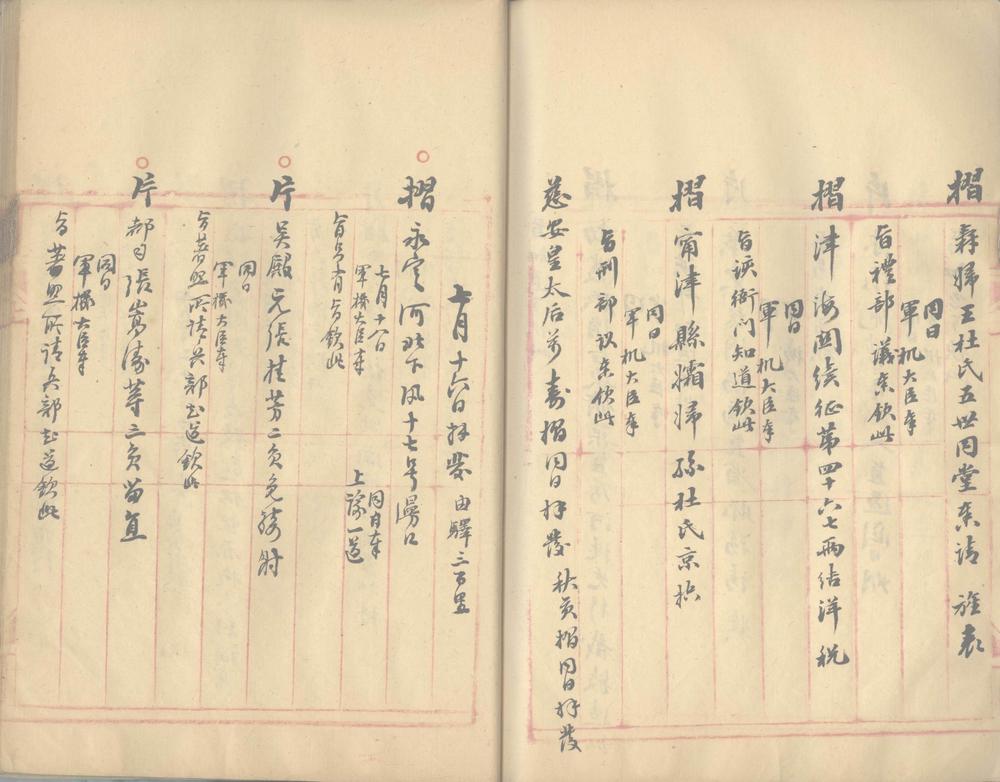 摺 壽婦王杜氏五世同堂奏請 旌表
同日
軍机大臣奉
旨禮部議奏欽此
摺 津海關續征第四十六七兩結洋稅
同日
軍机大臣奉
旨該衙門知道欽此
摺 甯津縣孀婦孫杜氏京控
同日
軍机大臣奉
旨刑部议奏欽此
慈安皇太后万壽摺同日拜發 秋貢摺同日拜發
七月十六日拜發 由驛三百里
摺 永定河北下汛十七号漫口
七月十八日
軍機大臣奉 同日奉
旨另有旨欽此 上諭一道
片 吴殿元張桂芳二員免騎射
同日
軍機大臣奉
旨著照所請兵部知道欽此
片 都司張嵩涛等三員留直
同日
軍機大臣奉
旨著照所請兵部知道欽此